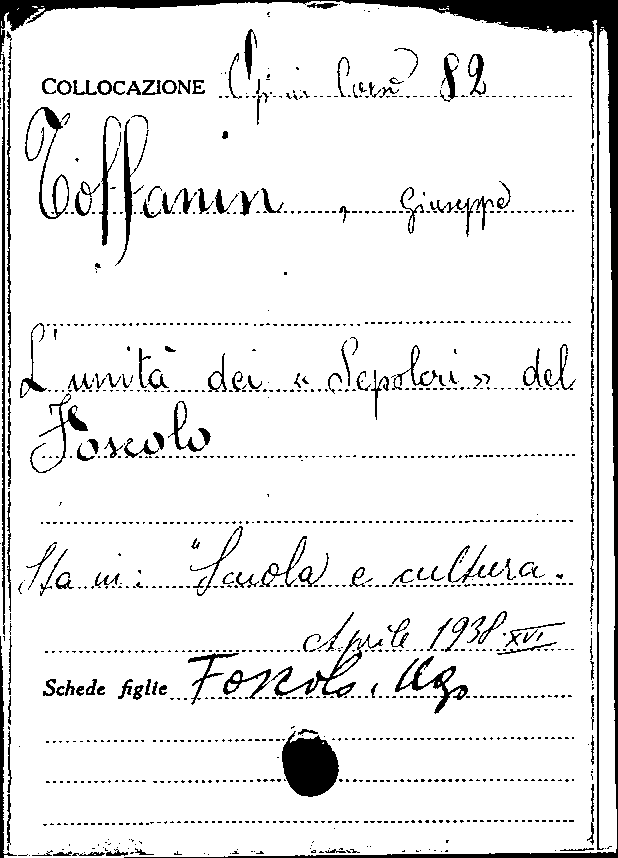 COLLOCAZIONE Op. in Corso 82
Toffanin, Giuseppe
L'unità dei « Sepolcri » del
Foscolo
Sta in: "Scuola e cultura.
Aprile 1938 XVI
Schede figlie Foscolo, Ugo